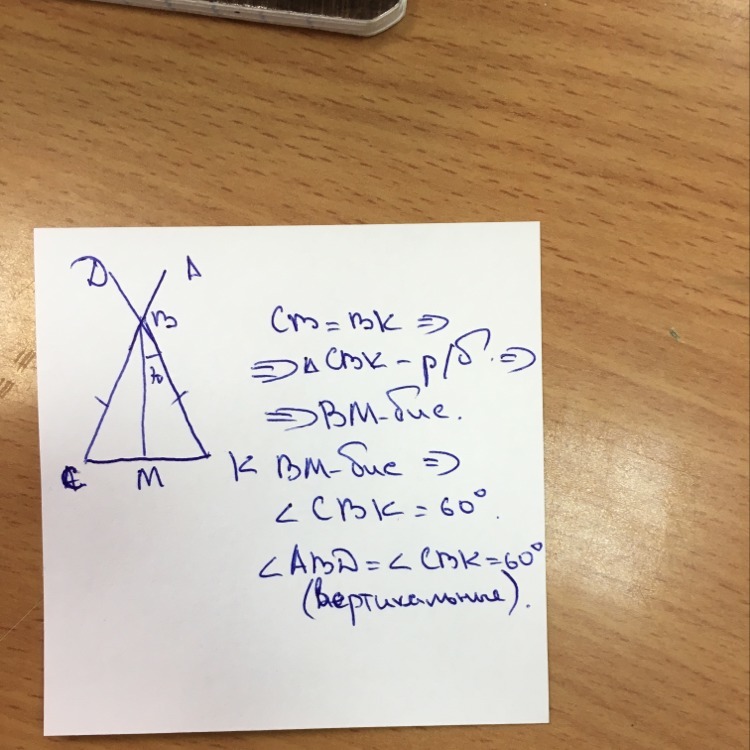 D A
B
C M K
CB = BK ⇒
⇒ △ CBK - р/б. ⇒
⇒ BM - бис.
BM - бис ⇒
∠ CBK = 60°.
∠ABD = ∠ CBK = 60°
(вертикальные).